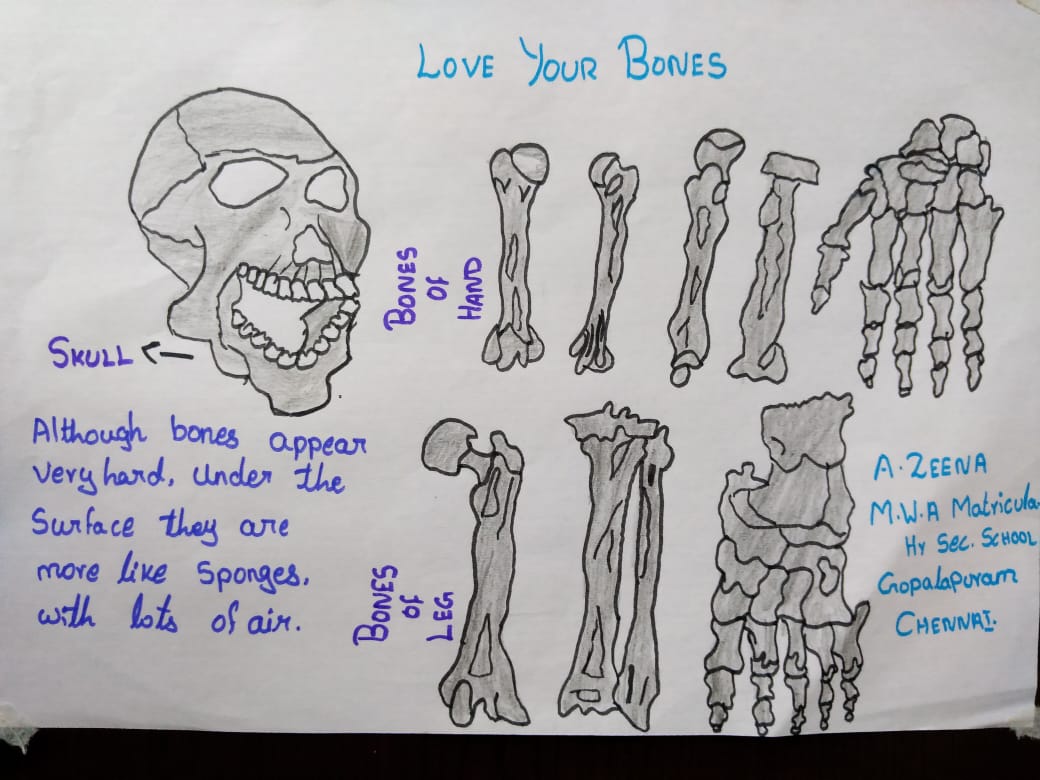 LOVE YOUR BONES
BONES
OF
HAND
SKULL
Although bones appear
very hard, under the
surface they are
more like sponges.
with lots of air.
BONES
OF
LEG
A. ZEENA
M.W.A Matricula
Hr Sec. SCHOOL
Gopalapuram
CHENNAI.